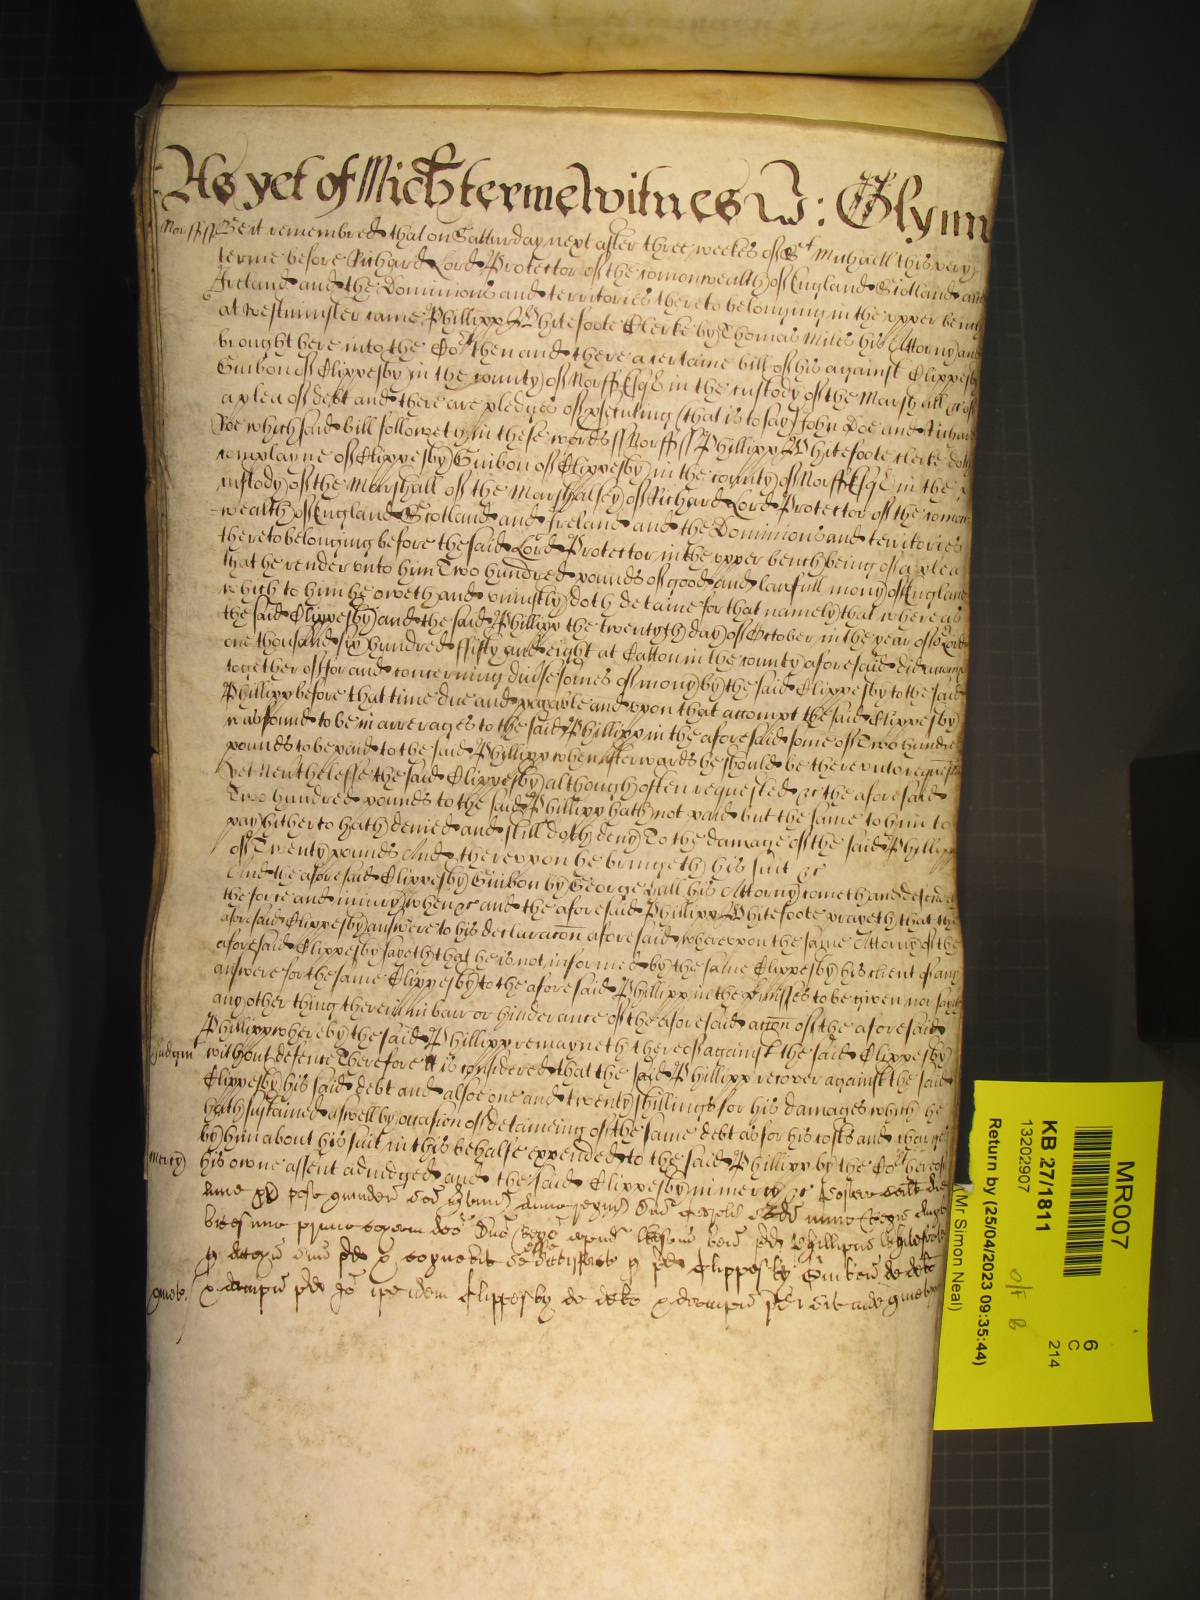 As yet of Mich terme Witnes J: Glynn
Norff ss Be it remembred that on Satturday next after three weekes of St Michaell this very
terme before Richard Lord Protector of the comonwealth of England Scotland and
Ireland and the Dominions and territories thereto belonging in the upper bench
at Westminster came Phillipp Whitefoote Clerke by Thomas Miles his Attorny and
brought here into the Cort then and there a certaine bill of his against Clippesby
Guibon of Clippesby in the county of Norff Esqr in the custody of the Marshall &c of
a plea of debt and there are pledges of psecuting (that is to say) John Doe and Richard
Roe which said bill followeth in these words ss Norff ss Phillipp Whitefoote clerke doth
complayne of Clippesby Guibon of Clippesby in the county of Norff Esqr in the
custody of the Marshall of the Marshalsey of Richard Lord Protector of the comon
wealth of England Scotland and Ireland and the Dominions and territories
thereto belonging before the said Lord Protector in the upper bench being of a plea
that he render unto him Two hundred pounds of good and lawfull mony of England
which to him he oweth and uniustly doth detaine for that namely that whereas
the said Clippesby and the said Phillipp the twentyth day of October in the year of or Lord
one thousand six hundred fifty and eight at Catton in the county aforesaid did accompt
together of for and concerning diverse somes of mony by the said Clippesby to the said
Phillipp before that time due and payable and upon that accompt the said Clippesby
was found to be in arrerages to the said Phillipp in the aforesaid some of Two hundred
pounds to be paid to the said Phillipp when afterwards he should be thereunto requested
yet Neverthelesse the said Clippesby although often requested &c the aforesaid
Two hundred pounds to the said Phillipp hath not paid but the same to him to
pay hitherto hath denied and still doth deny To the damage of the said Phillipp
of Twenty pounds And thereupon he bringeth his suit &c
And the aforesaid Clippesby Guibon by George Hall his Attorny cometh and defendeth
the force and iniury when &c and the aforesaid Phillipp Whitefoote prayeth that the
aforesaid Clippesby answere to his declaracon aforesaid whereupon the same Attorny of the
aforesaid Clippesby sayeth that he is not informed by the same Clippesby his client of any
answere for the same Clippesby to the aforesaid Phillipp in the pmisses to be given nor sayth
any other thing therein in barr or hinderance of the aforesaid accon of the aforesaid
Phillipp whereby the said Phillipp remayneth thereof against the said Clippesby
Judgmt without defence Therefore it is considered that the said Phillipp recover against the said
Clippesby his said debt and alsoe one and twenty shillings for his damages which he
hath sustained aswell by occasion of detaineing of the same debt as for his costs and charges
by him about his suit in this behalfe expended to the said Phillipp by the Cort here of
mercy his owne assent adiudged and the said Clippesby in mercy &c
Phillipus Whitefoote
Clippesby Guibon de deto
Clippesby de deto
MR007
KB 27/1811
13202907
Return by (25/04/2023 09:35:44)
(Mr Simon Neal)
6
C
214